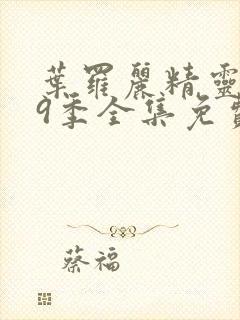 葉羅麗精靈
9季全集免費
蔡福